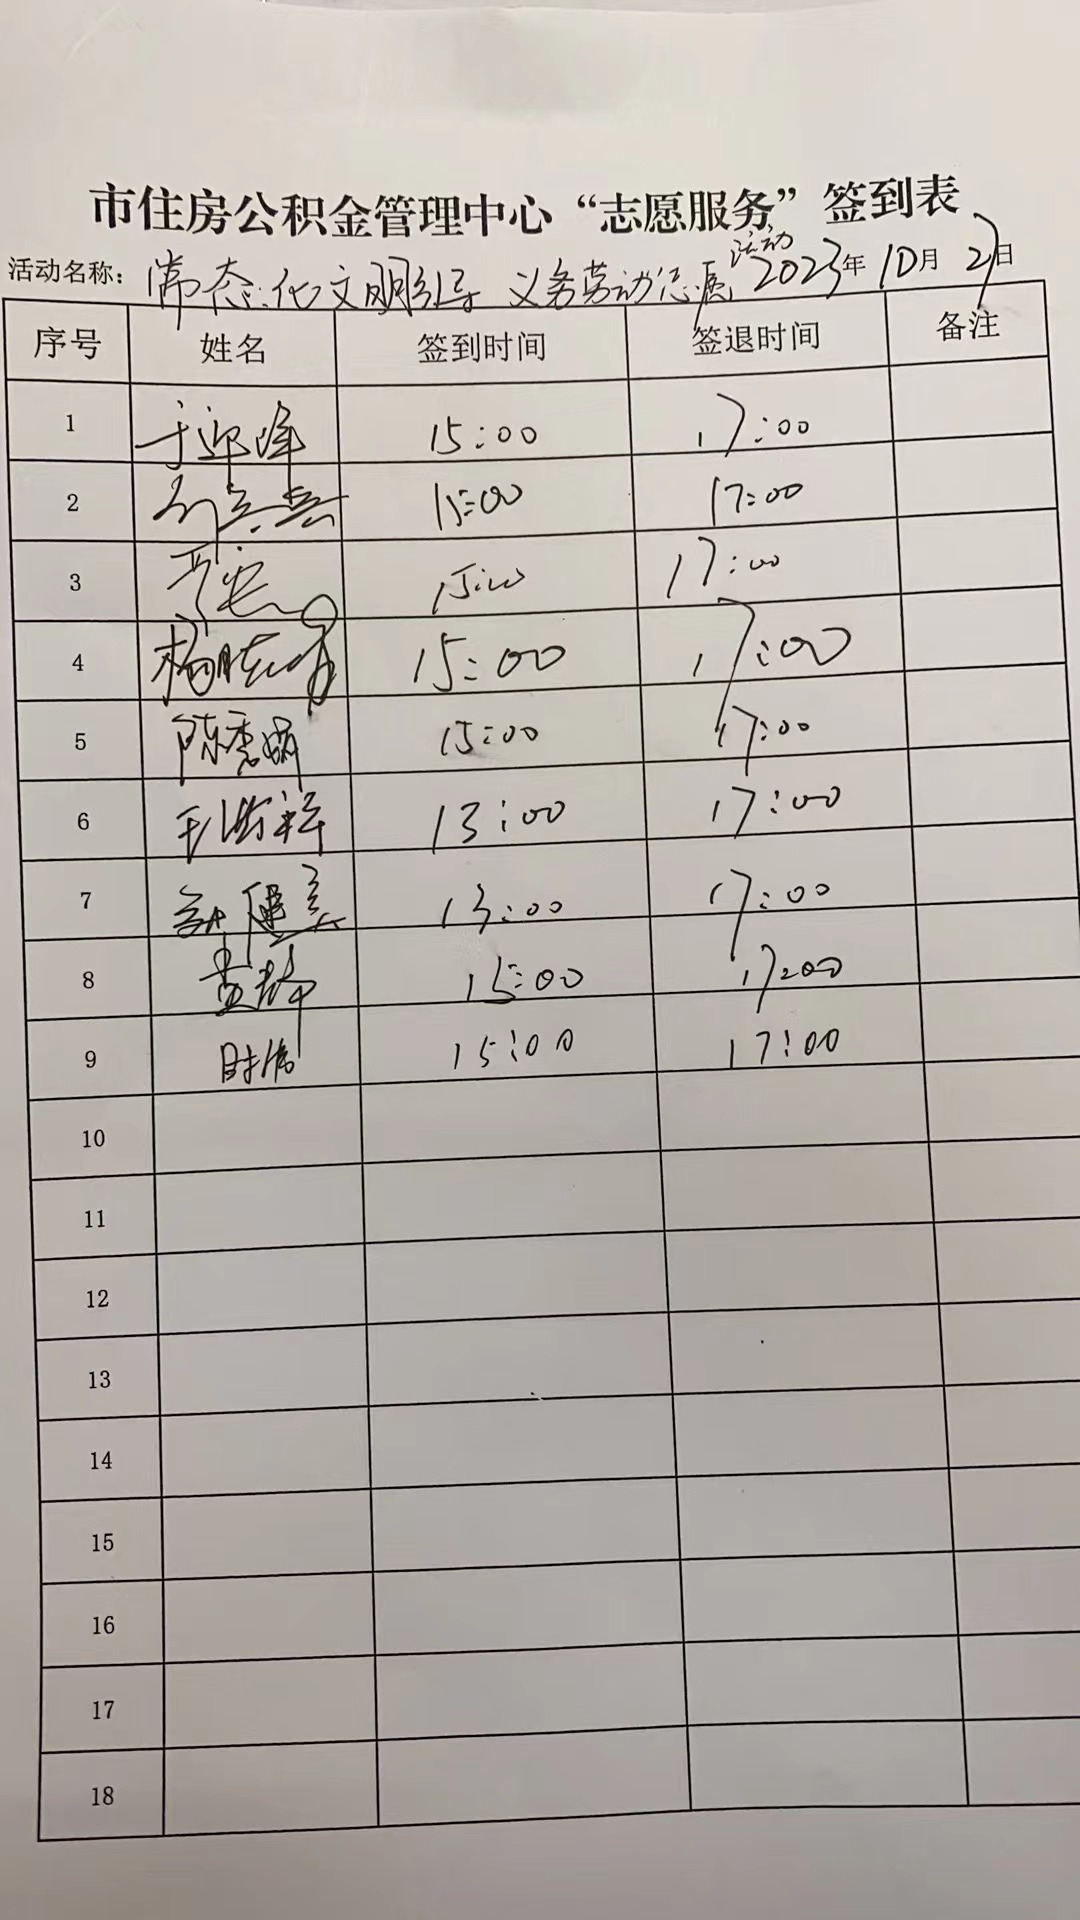 市住房公积金管理中心“志愿服务”签到表
活动名称：常态化文明引导 义务劳动志愿活动 2023年10月27日
序号 姓名 签到时间 签退时间 备注
1 于迎峰 15:00 17:00
2 15:00 17:00
3 15:00 17:00
4 15:00 17:00
5 陈秀娟 15:00 17:00
6 13:00 17:00
7 13:00 17:00
8 15:00 17:00
9 时倩 15:00 17:00
10
11
12
13
14
15
16
17
18